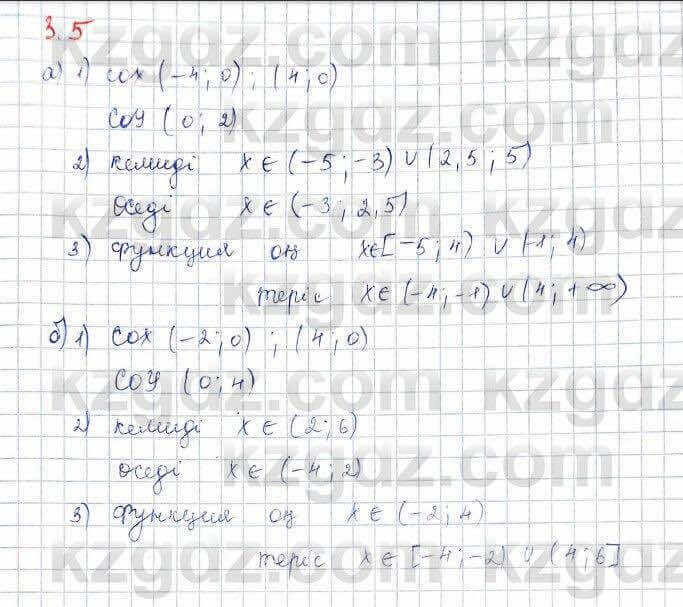 3.5
а) 1) COX (-4; 0); (4; 0)
COY (0; 2)
2) кемиді x ∈ (-5; -3) ∪ (2,5; 5)
өседі x ∈ (-3; 2,5)
3) функция оң x∈[-5; 4) ∪ (-1; 4)
теріс x∈ (-4; -1) ∪ (4; +∞)
б) 1) COX (-2; 0); (4; 0)
COY (0; 4)
2) кемиді x ∈ (2; 6)
өседі x ∈ (-4; 2)
3) функция оң x ∈ (-2; 4)
теріс x∈ [-4; -2) ∪ (4; 6]
kzgdz.com